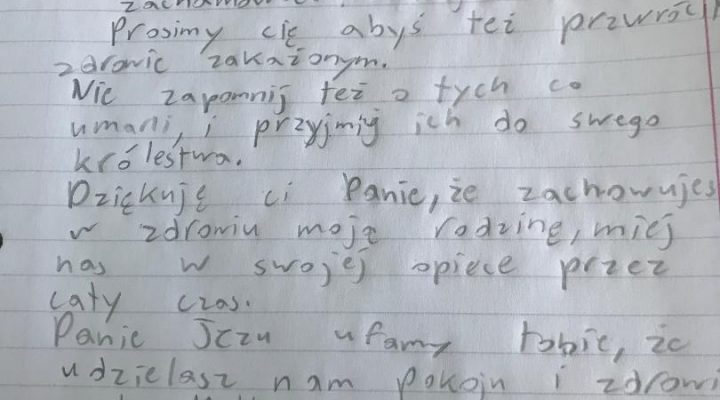 Prosimy cię abyś też przwrócił
zdrowie zakażonym.
Nie zapomnij też o tych co
umarli, i przyjmij ich do swego
królestwa.
Dziękuję ci Panie, że zachowujes
w zdrowiu moją rodzinę, miej
nas w swojej opiece przez
cały czas.
Panie Jezu ufamy tobie, że
udzielasz nam pokoju i zdrowi